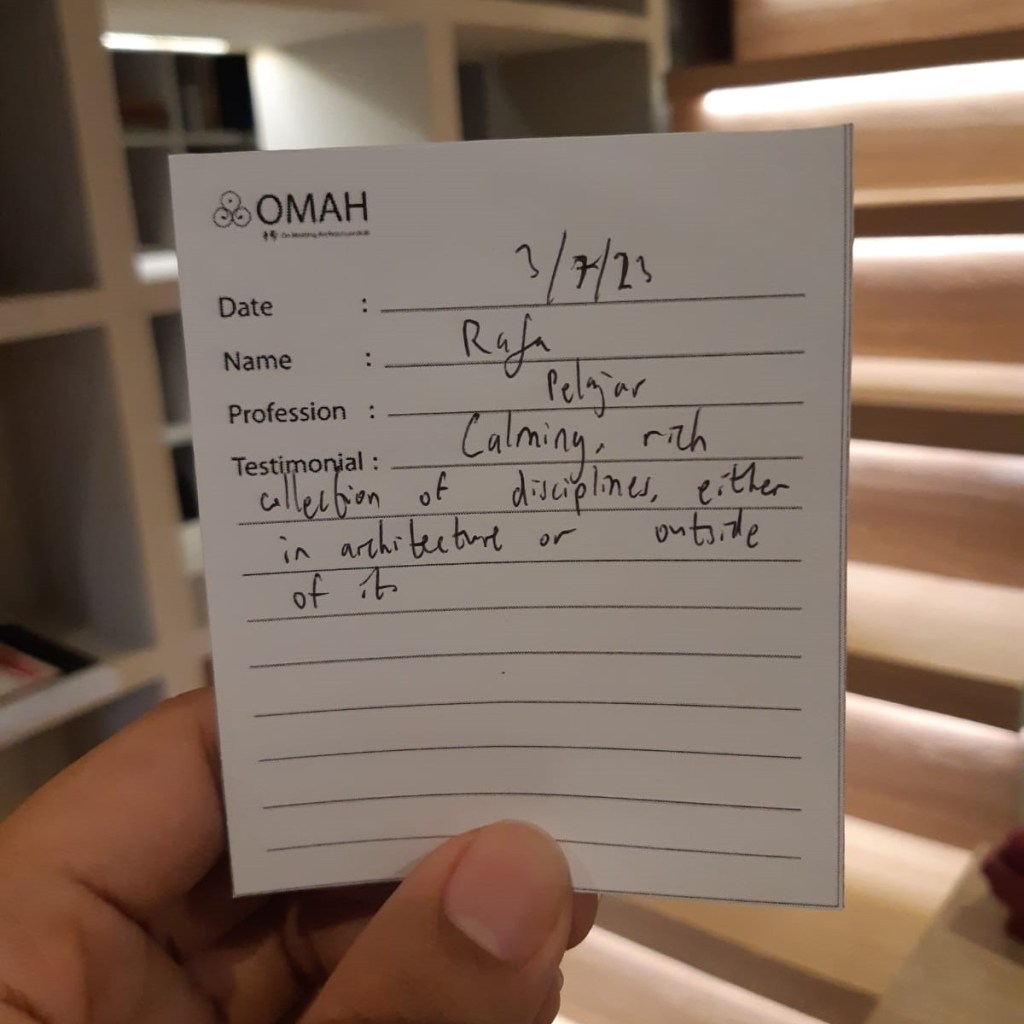 OMAH
Date : 3/7/23
Name : Rafa
Profession : Pelajar
Testimonial : Calming, rich
collection of disciplines, either
in architecture or outside
of it